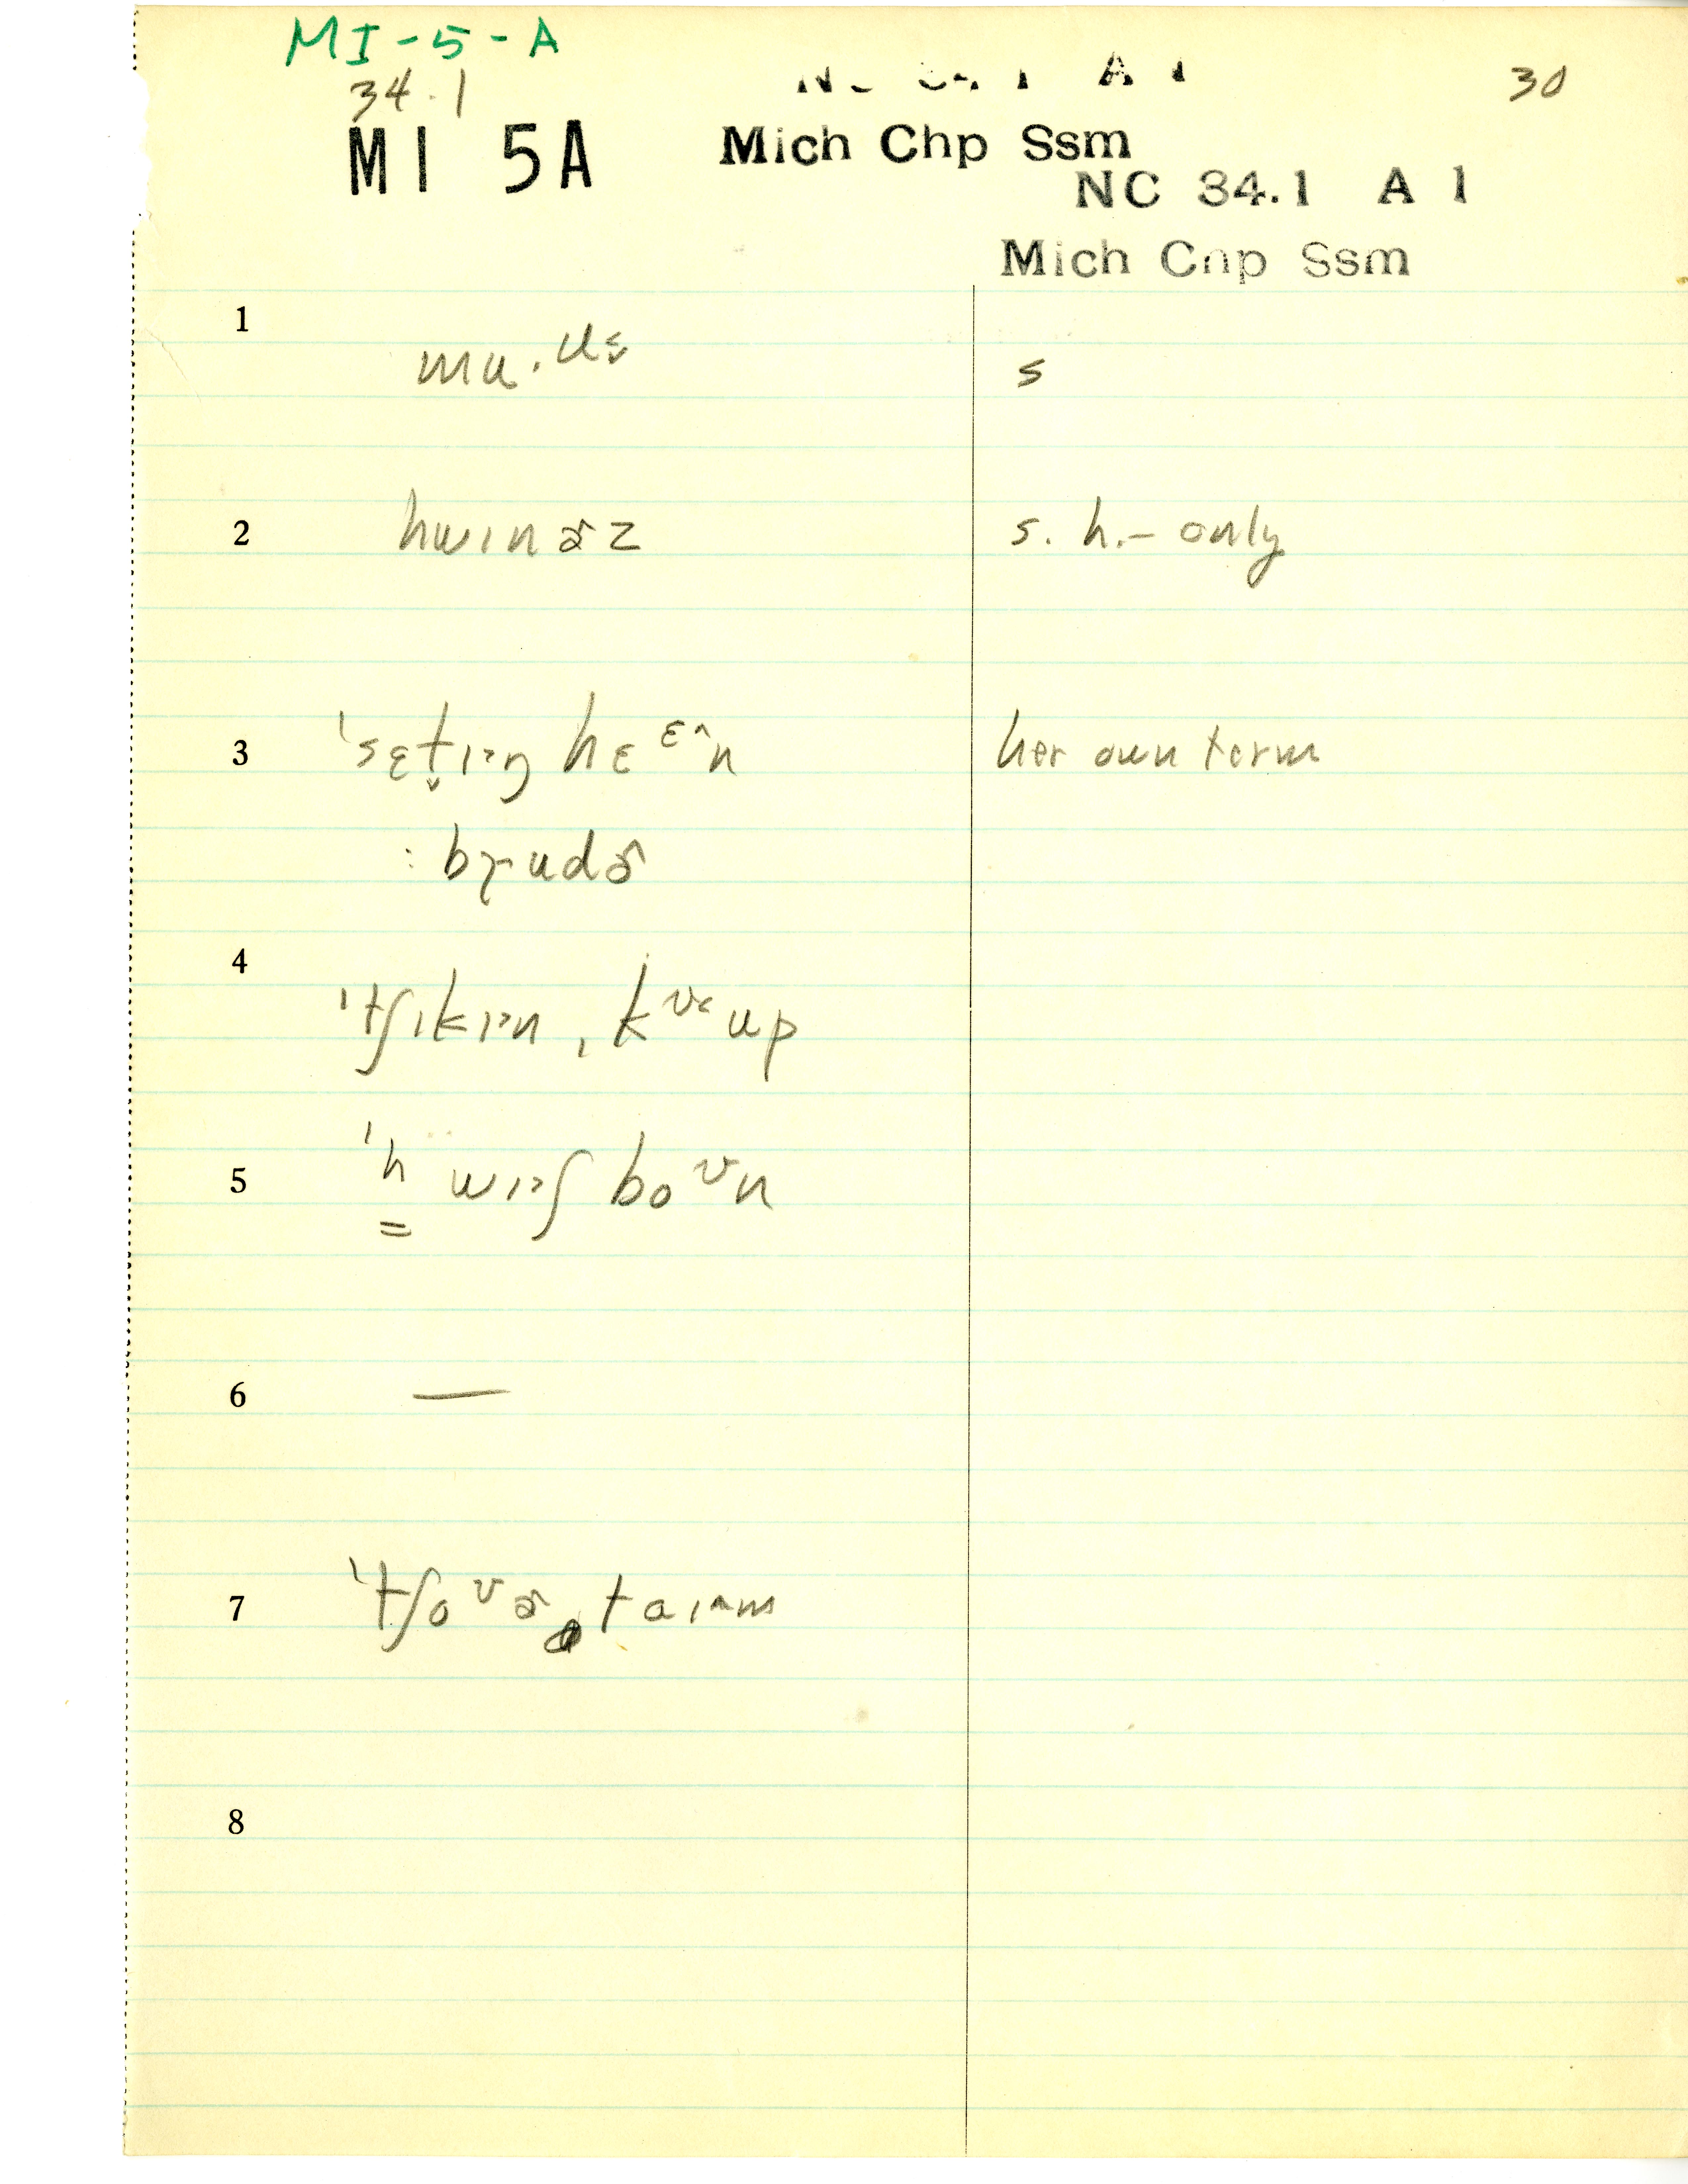 MI-5-A
34.1
30
MI 5A
Mich Chp Ssm
NC 34.1 A 1
Mich Chp Ssm
1
mu.ᵁᵋ
s
2
hwɪnɚz
s. h.- only
3
ˈsɛt̬ɪ˃ŋ hɛᵋ˄n
her own term
: bɪ˃udɚ
4
ˈtʃɪkɪ˃n ˌkᵛ˂up
5
ˈh wɪ˃ʃ boᵛn
6
—
7
ˈtʃoᵛɚ taɪ˄m
8